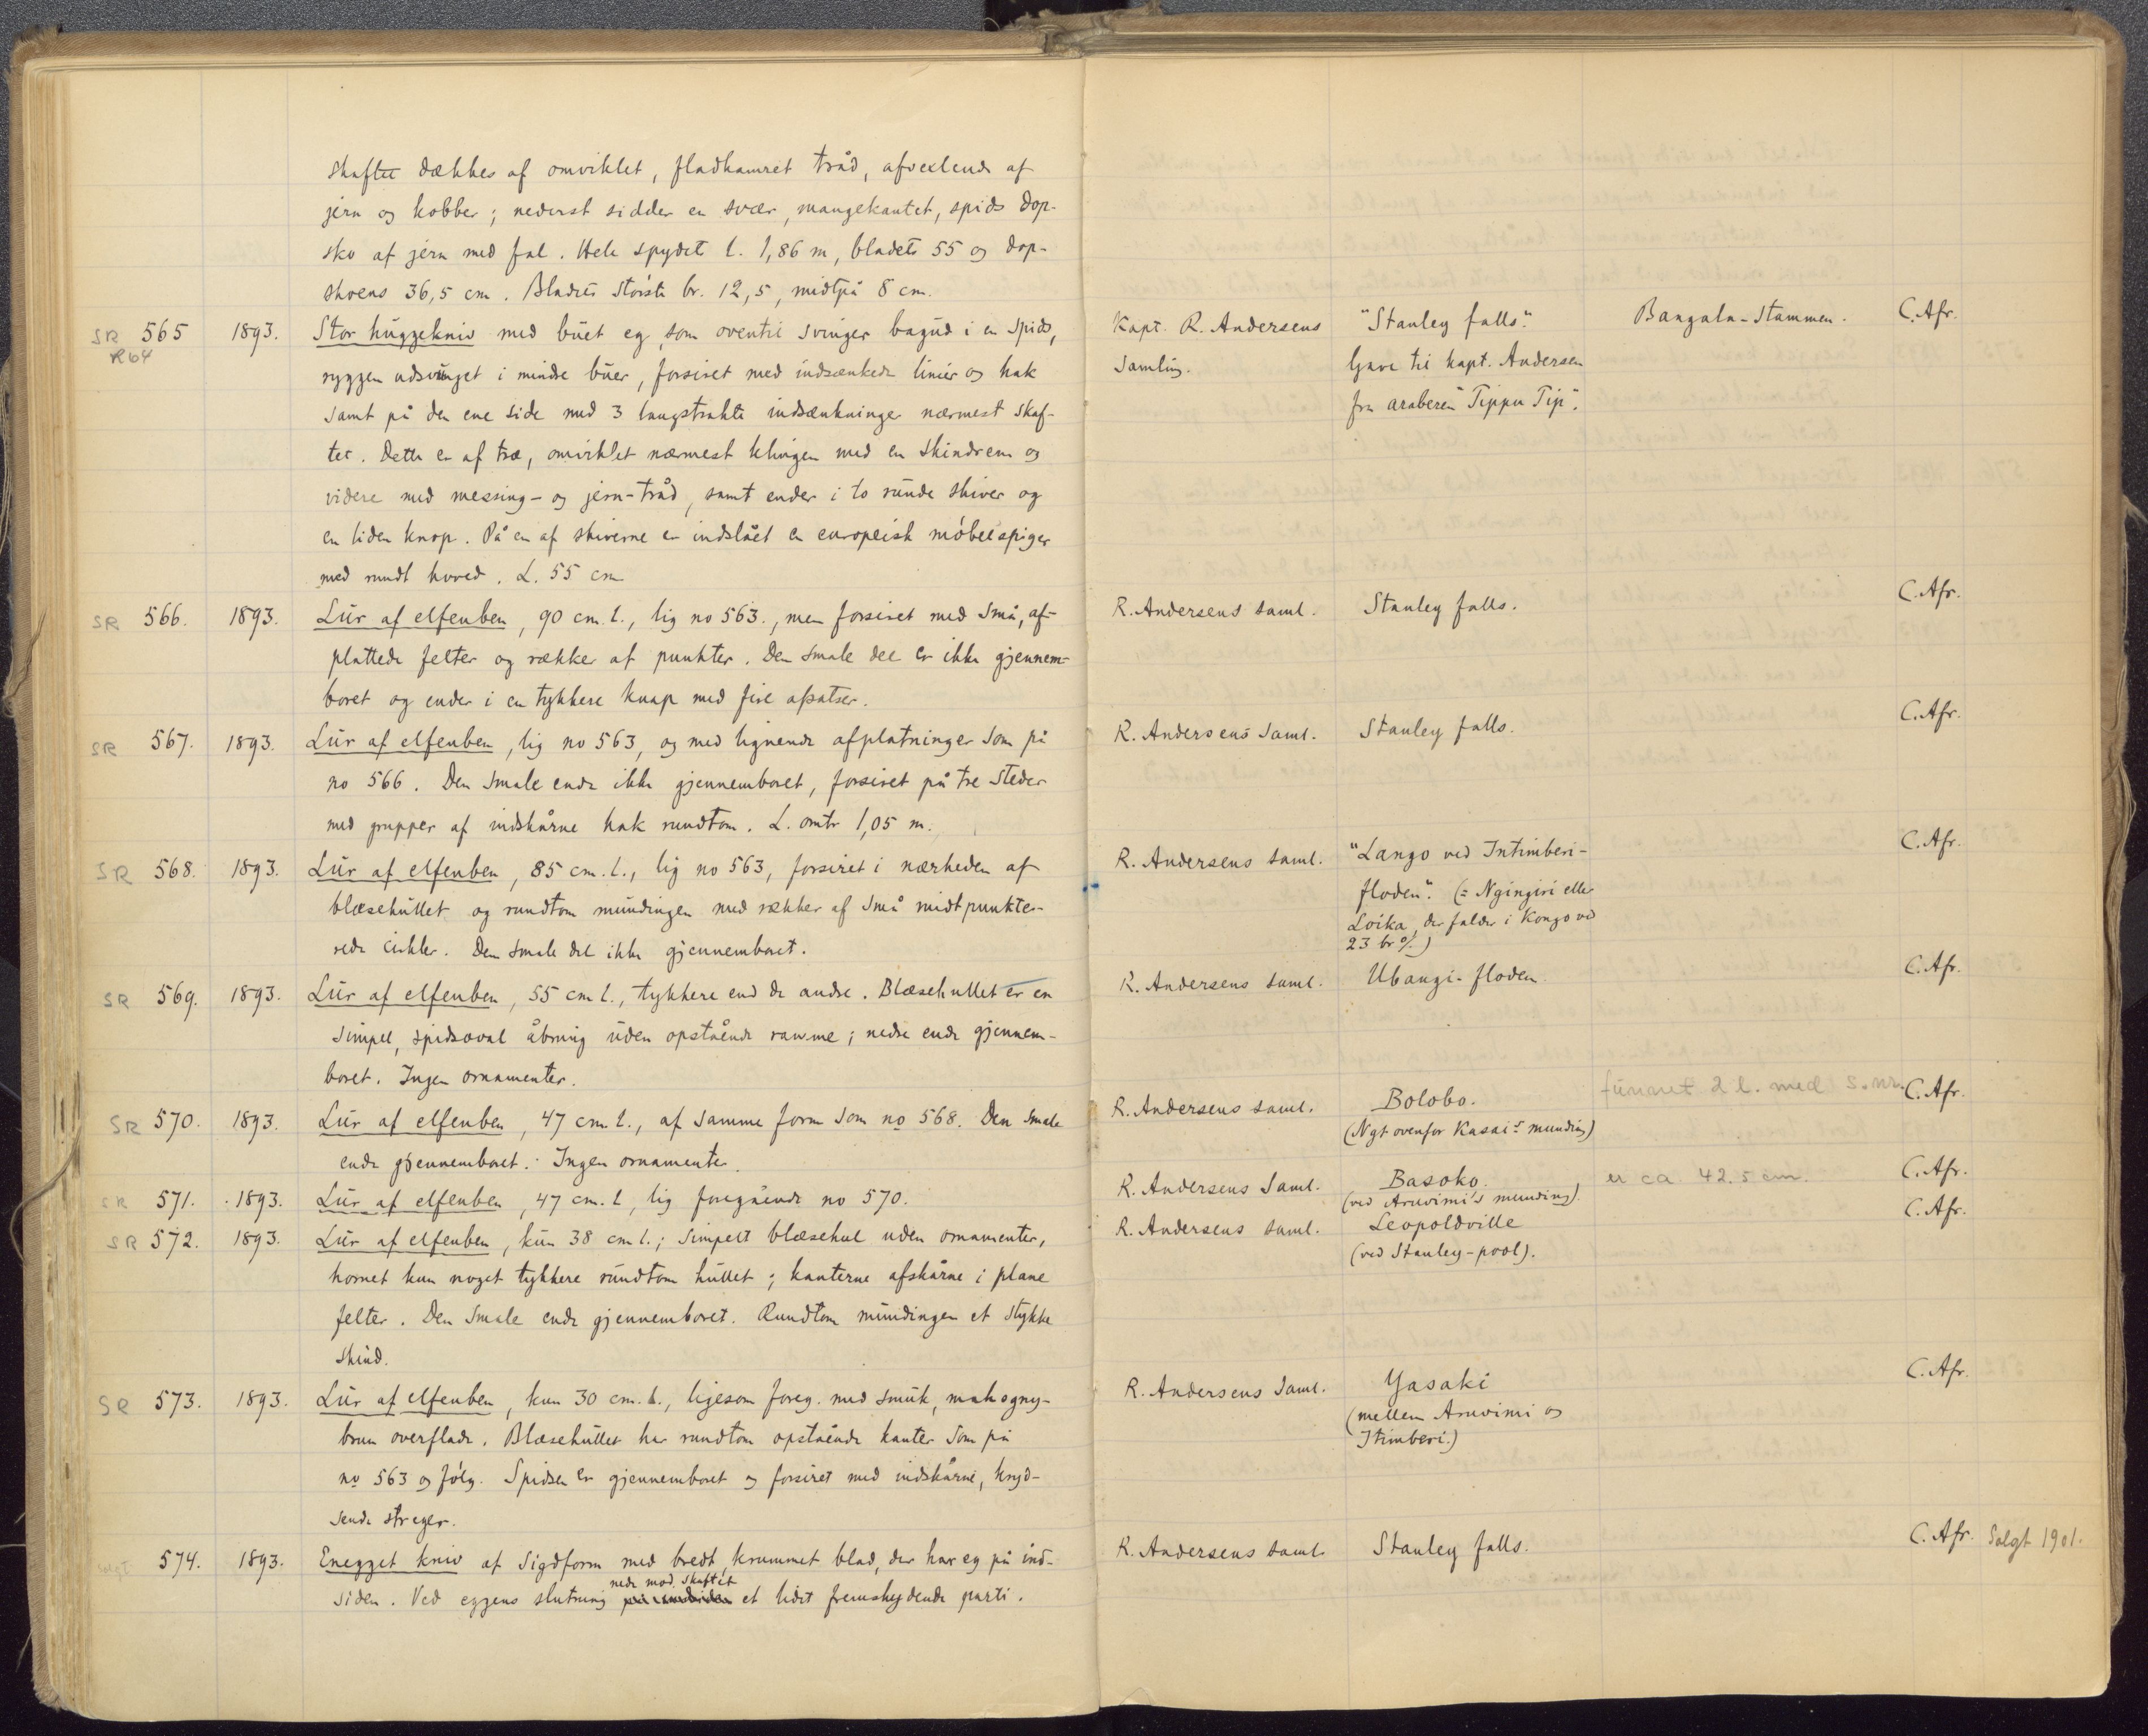 skaftet dækkes af omviklet, fladhamret tråd, afvexlende af
jern og kobber; nederst sidder en svær, mangekantet, spids dop-
sko af jern med fal. Hele spydets l. 1,86 m, bladets 55 og dop-
skoens 36,5 cm. Bladets største br. 12,5, midtpå 8 cm.
SR 565 1893. Stor huggekniv med buet eg, som oventil svinger bagud i en spids, Kapt. R. Andersens "Stanley falls". Bangala-Stammen. C.Afr.
R64 ryggen udsvunget i mindre buer, forsiret med indsænkede linier og hak Samling. Gave til kapt. Andersen
samt på den ene side med 3 langstrakte indsænkninger nærmest skaf- fra araberen "Tippu Tip".
tet. Dette er af træ, omviklet nærmest klingen med en skindrem og
videre med messing- og jern-tråd, samt ender i to runde skiver og
en liden knop. På en af skiverne er indslået en europeisk møbelspiger
med rundt hoved. L. 55 cm
SR 566. 1893. Lur af elfenben, 90 cm. l., lig no 563., men forsiret med små, af- R. Andersens saml. Stanley falls. C.Afr.
plattede felter og rækker af punkter. Den smale del er ikke gjennem-
boret og ender i en tykkere knap med fire afsatser.
SR 567. 1893. Lur af elfenben, lig no 563, og med lignende afplatninger som på R. Andersens saml. Stanley falls. C.Afr.
no 566. Den smale ende ikke gjennemboret, forsiret på tre steder
med grupper af indskårne hak rundtom. L. omtr 1,05 m.
SR 568. 1893. Lur af elfenben, 85 cm. l., lig no 563, forsiret i nærheden af R. Andersens saml. "Lango ved Intimberi- C.Afr.
blæsehullet og rundtom mundingen med rækker af små midtpunkte- floden". (= Ngingiri eller
rede cirkler. Den smale del ikke gjennemboret. Loika, der falder i Kongo ved
23 br %.)
SR 569. 1893. Lur af elfenben, 55 cm l., tykkere end de andre. Blæsehullet er en R. Andersens saml. Ubangi-floden. C.Afr.
simpel, spidsoval åbning uden opstående ramme; nedre ende gjennem-
boret. Ingen ornamenter.
SR 570. 1893. Lur af elfenben, 47 cm. l., af samme form som no 568. Den smale R. Andersens saml. Bolobo. funnet 2 l. med s. nr. C.Afr.
ende gjennemboret. Ingen ornamenter. (Ngt ovenfor Kasai's munding)
SR 571. 1893. Lur af elfenben, 47 cm. l, lig foregående no 570. R. Andersens Saml. Basoko. er ca. 42.5 cm. C.Afr.
(ved Aruvimi's munding).
SR 572. 1893. Lur af elfenben, kun 38 cm l.; simpelt blæsehul uden ornamenter, R. Andersens saml. Leopoldville C.Afr.
hornet kun noget tykkere rundtom hullet; kanterne afskårne i plane (ved Stanley-pool).
felter. Den smale ende gjennemboret. Rundtom mundingen et stykke
skind.
SR 573. 1893. Lur af elfenben, kun 30 cm. l., ligesom foreg. med smuk, mahogny- R. Andersens Saml. Yasaki C.Afr.
brun overflade. Blæsehullet har rundtom opstående kanter som på (mellem Aruvimi og
no 563 og følg. Spidsen er gjennemboret og forsiret med indskårne, kryd- Itimberi.)
sende streger.
solgt 574. 1893. Enegget kniv af Sigdform med bredt, krummet blad, der har eg på ind- R. Andersens saml. Stanley falls. C.Afr. Solgt 1901.
nede mod skaftet
siden. Ved eggens slutning på indsiden et lidet fremskydende parti.